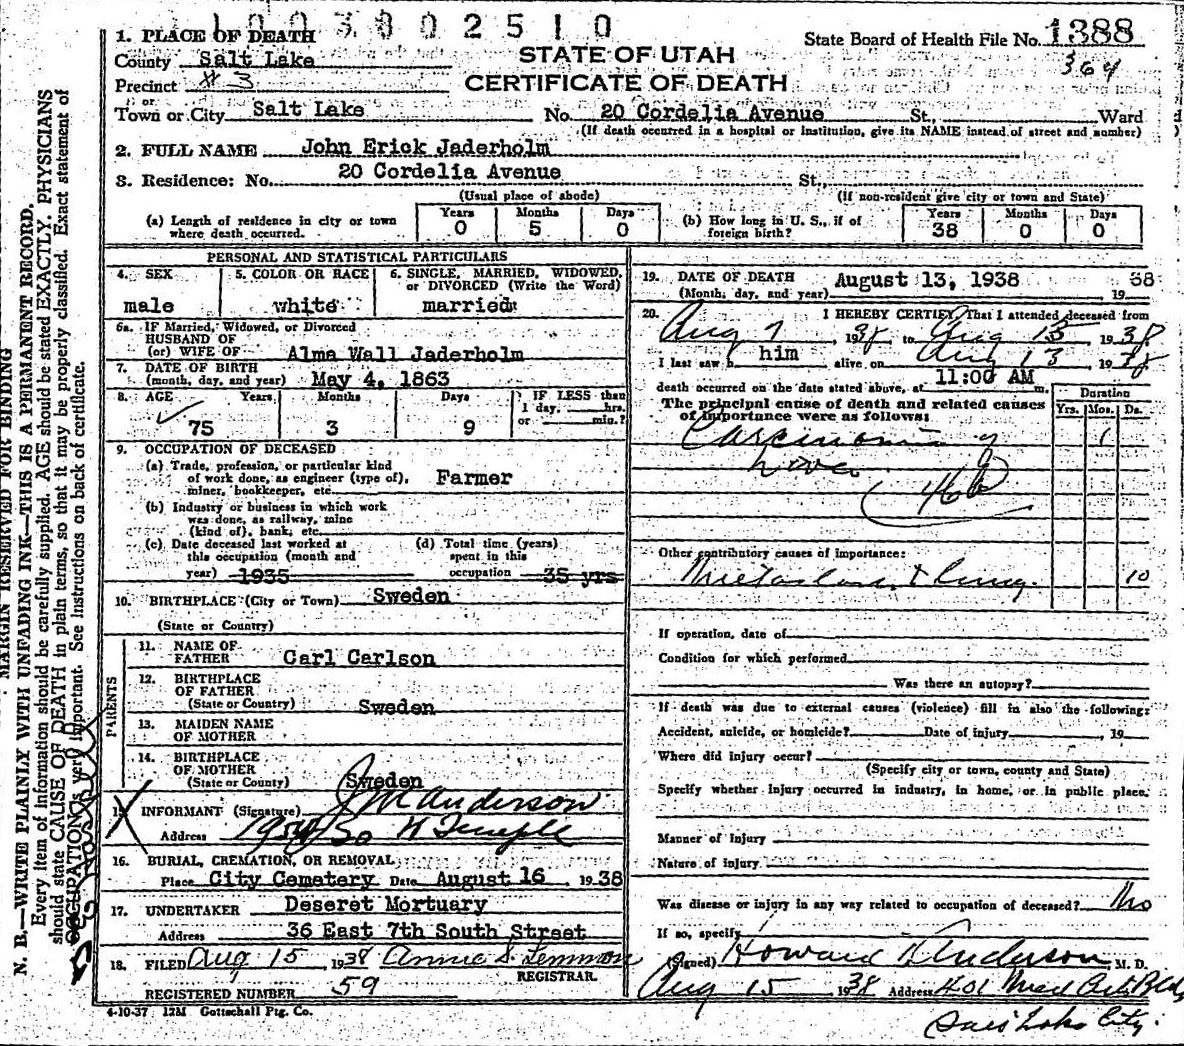 1003802510
1. PLACE OF DEATH
County Salt Lake
Precinct # 3
or
Town or City Salt Lake
STATE OF UTAH
CERTIFICATE OF DEATH
State Board of Health File No. 1388
364
No. 20 Cordelia Avenue St., Ward
(If death occurred in a hospital or institution, give its NAME instead of street and number)
2. FULL NAME John Erick Jaderholm
3. Residence: No. 20 Cordelia Avenue St.,
(Usual place of abode) (If non-resident give city or town and State)
(a) Length of residence in city or town where death occurred. Years 0 Months 5 Days 0
(b) How long in U. S., if of foreign birth? Years 38 Months 0 Days 0
PERSONAL AND STATISTICAL PARTICULARS
4. SEX male
5. COLOR OR RACE white
6. SINGLE, MARRIED, WIDOWED, or DIVORCED (Write the Word) married
6a. IF Married, Widowed, or Divorced
HUSBAND OF
(or) WIFE OF Alma Wall Jaderholm
7. DATE OF BIRTH
(month, day, and year) May 4, 1863
8. AGE Years 75 Months 3 Days 9 IF LESS than 1 day, hrs. or min.?
9. OCCUPATION OF DECEASED
(a) Trade, profession, or particular kind
of work done, as engineer (type of), Farmer
miner, bookkeeper, etc.
(b) Industry or business in which work
was done, as railway, mine
(kind of), bank, etc.
(c) Date deceased last worked at
this occupation (month and
year) 1935
(d) Total time (years)
spent in this
occupation 35 yrs
10. BIRTHPLACE (City or Town) Sweden
(State or Country)
PARENTS
11. NAME OF
FATHER Carl Carlson
12. BIRTHPLACE
OF FATHER
(State or Country) Sweden
13. MAIDEN NAME
OF MOTHER
14. BIRTHPLACE
OF MOTHER
(State or County) Sweden
15. INFORMANT (Signature) J M Anderson
Address So W Temple
16. BURIAL, CREMATION, OR REMOVAL
Place City Cemetery Date August 16, 1938
17. UNDERTAKER Deseret Mortuary
Address 36 East 7th South Street
18. FILED Aug 15, 1938 Annie S. Lemmon
REGISTRAR.
REGISTERED NUMBER 59
4-10-37 12M Gottschall Ptg. Co.
19. DATE OF DEATH August 13, 1938 38
(Month, day, and year) , 19
20. I HEREBY CERTIFY, That I attended deceased from
Aug 7, 1938 to Aug 13 1938
I last saw h him alive on Aug 13 1938
death occurred on the date stated above, at 11:00 AM m.
The principal cause of death and related causes
of importance were as follows:
Duration
Yrs. Mos. Ds.
Carcinoma of 1
Liver
46b
Other contributory causes of importance:
10
If operation, date of
Condition for which performed
Was there an autopsy?
If death was due to external causes (violence) fill in also the following:
Accident, suicide, or homicide? Date of injury , 19
Where did injury occur?
(Specify city or town, county and State)
Specify whether injury occurred in industry, in home, or in public place.
Manner of injury
Nature of injury
Was disease or injury in any way related to occupation of deceased? No
If so, specify
(Signed) Howard Anderson, M. D.
Aug 15 1938 Address 401 Med Arts Bldg
Salt Lake City.
MARGIN RESERVED FOR BINDING
N. B.—WRITE PLAINLY WITH UNFADING INK—THIS IS A PERMANENT RECORD.
Every item of information should be carefully supplied. AGE should be stated EXACTLY. PHYSICIANS
should state CAUSE OF DEATH in plain terms, so that it may be properly classified. Exact statement of
OCCUPATION is very important. See instructions on back of certificate.